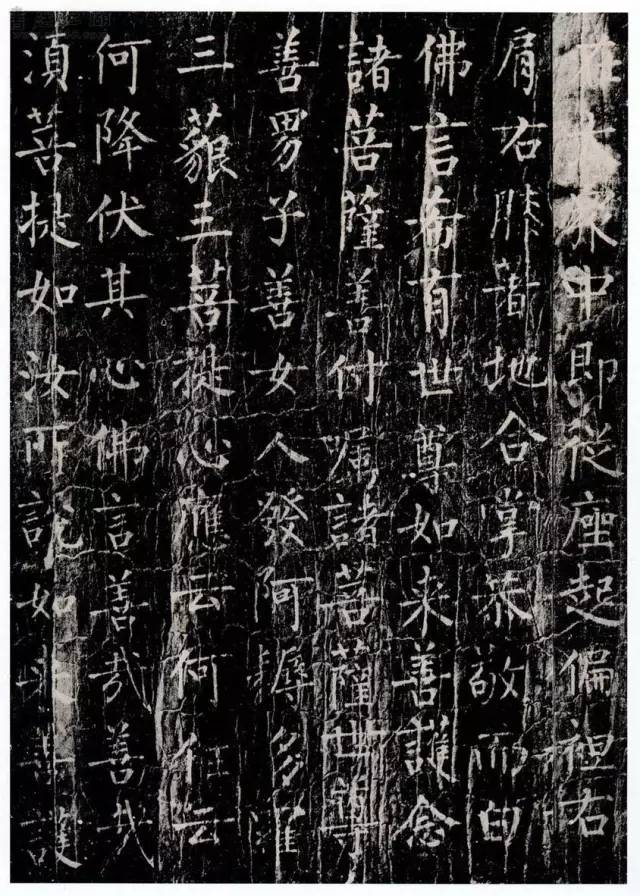 在大衆中即從座起偏袒右
肩右膝著地合掌恭敬而白
佛言希有世尊如来善護念
諸菩薩善付嘱諸菩薩世尊
善男子善女人發阿耨多羅
三藐三菩提心應云何住云
何降伏其心佛言善哉善哉
湏菩提如汝所說如来善護